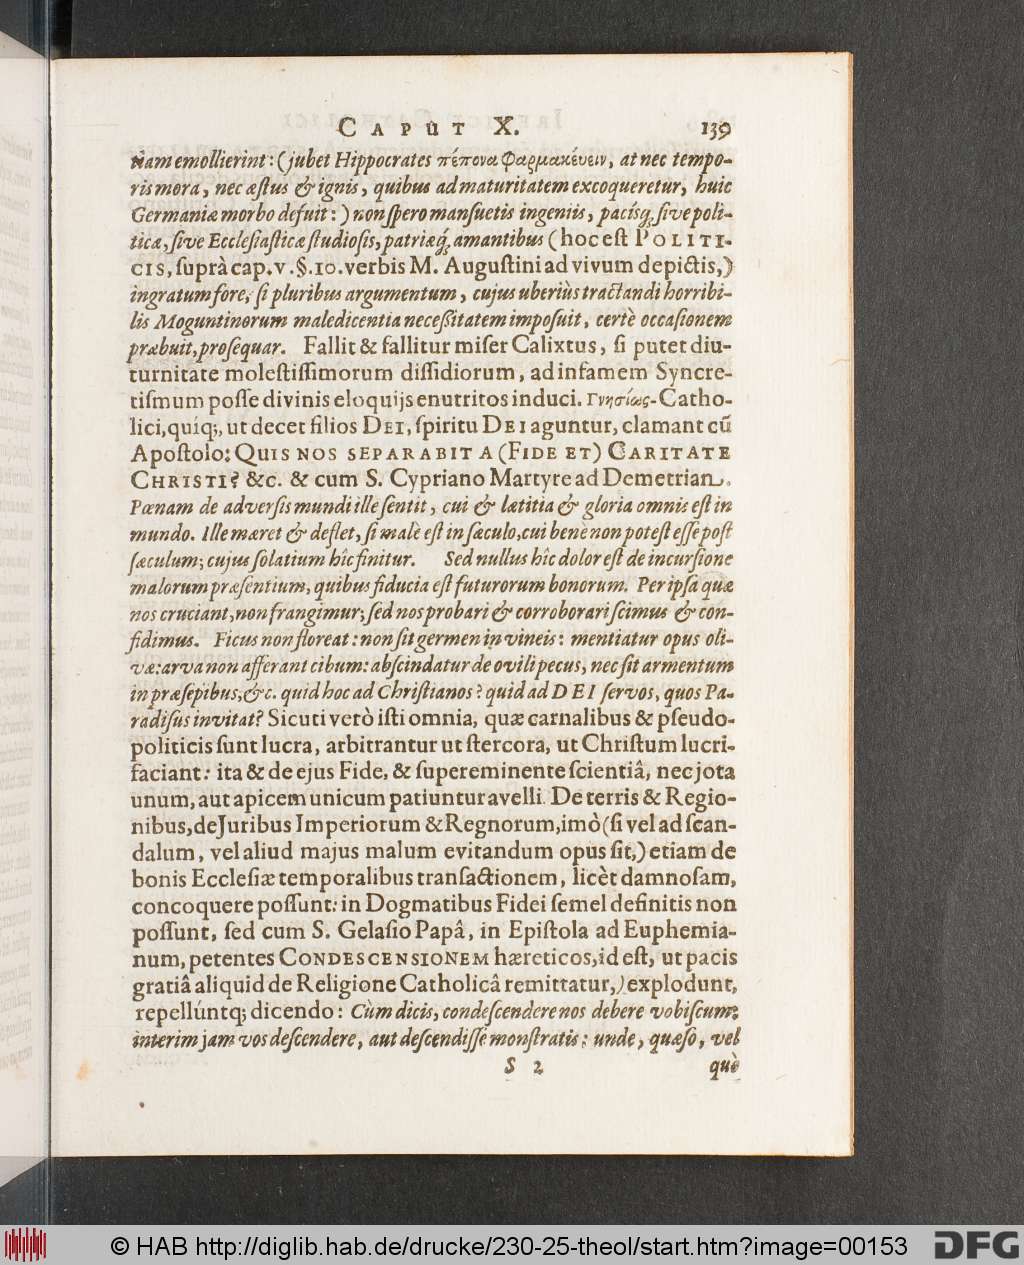 CAPUT X. 139
nam emollierint: (jubet Hippocrates πέπονα φαρμακέυειν, at nec tempo-
ris mora, nec æstus & ignis, quibus ad maturitatem excoqueretur, huic
Germaniæ morbo defuit:) non spero mansuetis ingeniis, pacisq́; sive poli-
ticæ, sive Ecclesiasticæ studiosis, patriæq́; amantibus (hoc est POLITI-
CIS, suprà cap. v. §. 10. verbis M. Augustini ad vivum depictis,)
ingratum fore, si pluribus argumentum, cujus uberiùs tractandi horribi-
lis Moguntinorum maledicentia necessitatem imposuit, certè occasionem
præbuit, prosequar. Fallit & fallitur miser Calixtus, si putet diu-
turnitate molestissimorum dissidiorum, ad infamem Syncre-
tismum posse divinis eloquijs enutritos induci. Γνησίως-Catho-
lici, quíq;, ut decet filios DEI, spiritu DEI aguntur, clamant cū
Apostolo: QUIS NOS SEPARABIT A (FIDE ET) CARITATE
CHRISTI? &c. & cum S. Cypriano Martyre ad Demetrian.
Pœnam de adversis mundi ille sentit, cui & lætitia & gloria omnis est in
mundo. Ille mæret & deflet, si malè est in sæculo, cui benè non potest esse post
sæculum; cujus solatium hîc finitur. Sed nullus hîc dolor est de incursione
malorum præsentium, quibus fiducia est futurorum bonorum. Per ipsa quæ
nos cruciant, non frangimur; sed nos probari & corroborari scimus & con-
fidimus. Ficus non floreat: non sit germen in vineis: mentiatur opus oli-
væ: arva non afferant cibum: abscindatur de ovili pecus, nec sit armentum
in præsepibus, &c. quid hoc ad Christianos? quid ad DEI servos, quos Pa-
radisus invitat? Sicuti verò isti omnia, quæ carnalibus & pseudo-
politicis sunt lucra, arbitrantur ut stercora, ut Christum lucri-
faciant: ita & de ejus Fide, & supereminente scientiâ, nec jota
unum, aut apicem unicum patiuntur avelli. De terris & Regio-
nibus, de Juribus Imperiorum & Regnorum, imò (si vel ad scan-
dalum, vel aliud majus malum evitandum opus sit,) etiam de
bonis Ecclesiæ temporalibus transactionem, licèt damnosam,
concoquere possunt: in Dogmatibus Fidei semel definitis non
possunt, sed cum S. Gelasio Papâ, in Epistola ad Euphemia-
num, petentes CONDESCENSIONEM hæreticos, id est, ut pacis
gratiâ aliquid de Religione Catholicâ remittatur,) explodunt,
repellúntq; dicendo: Cùm dicis, condescendere nos debere vobiscum;
interim jam vos descendere, aut descendisse monstratis: unde, quæso, vel
S 2 què
© HAB http://diglib.hab.de/drucke/230-25-theol/start.htm?image=00153 DFG